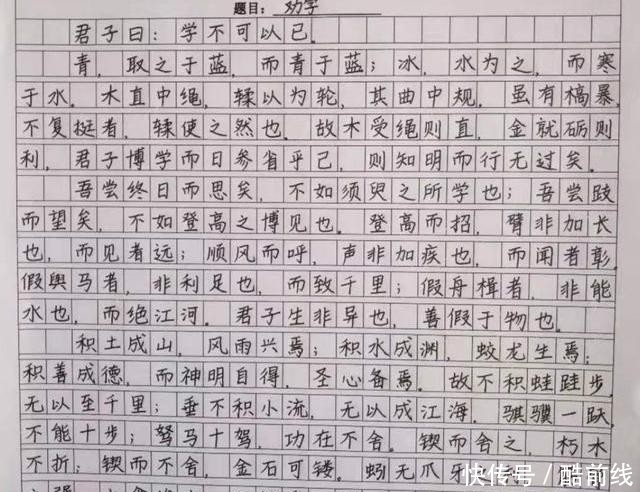 题目：劝学
君子曰：学不可以已.
青，取之于蓝，而青于蓝；冰，水为之，而寒
于水．木直中绳，輮以为轮，其曲中规．虽有槁暴，
不复挺者，輮使之然也．故木受绳则直，金就砺则
利，君子博学而日参省乎己，则知明而行无过矣．
吾尝终日而思矣，不如须臾之所学也；吾尝跂
而望矣，不如登高之博见也．登高而招，臂非加长
也，而见者远；顺风而呼，声非加疾也，而闻者彰.
假舆马者，非利足也，而致千里；假舟楫者，非能
水也，而绝江河．君子生非异也，善假于物也.
积土成山，风雨兴焉；积水成渊，蛟龙生焉；
积善成德，而神明自得，圣心备焉．故不积蛙跬步，
无以至千里；垂不积小流，无以成江海．骐骥一跃，
不能十步；驽马十驾，功在不舍．锲而舍之，朽木
不折；锲而不舍，金石可镂．蚓无爪牙
快传号／酷前线